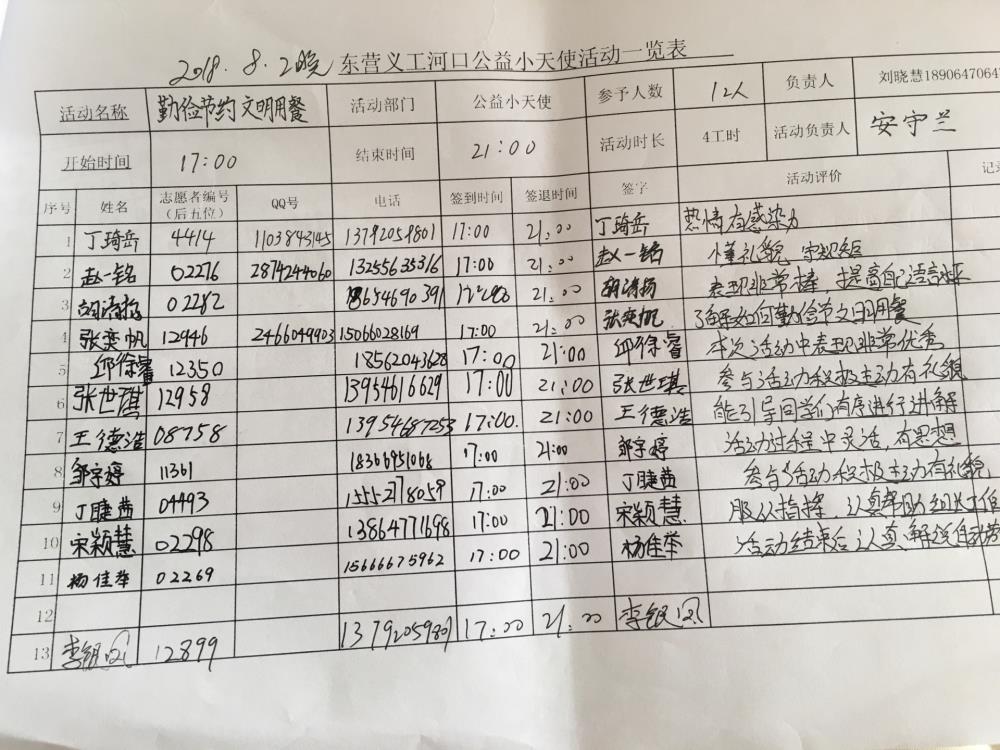 2018.8.2晚 东营义工河口公益小天使活动一览表
活动名称 勤俭节约 文明用餐 活动部门 公益小天使 参予人数 12人 负责人 刘晓慧1890647064
开始时间 17:00 结束时间 21:00 活动时长 4工时 活动负责人 安守兰
序号 姓名 志愿者编号（后五位） QQ号 电话 签到时间 签退时间 签字 活动评价 记录
1 丁琦岳 4414 1103843145 13792059801 17:00 21:00 丁琦岳 热情有感染力
2 赵一铭 02276 2874244060 13255635316 17:00 21:00 赵一铭 懂礼貌 守规矩
3 胡清扬 02282 18654690391 17:00 21:00 胡清扬 表现非常棒 提高自己语言水平
4 张奕帆 12946 2466049903 15066028169 17:00 21:00 张奕帆 了解如何勤俭节文明用餐
5 邱徐睿 12350 18562043628 17:00 21:00 邱徐睿 本次活动中表现非常优秀
6 张世琪 12958 13954616629 17:00 21:00 张世琪 参与活动积极主动有礼貌
7 王德浩 08758 13954687253 17:00 21:00 王德浩 能引导同学们有序进行讲解
8 邹宇婷 11361 18366951068 17:00 21:00 邹宇婷 活动过程中灵活,有思想
9 丁睫茜 04493 15552778059 17:00 21:00 丁睫茜 参与活动积极主动有礼貌
10 宋颖慧 02298 13864771698 17:00 21:00 宋颖慧 服从指挥,认真帮助组长工作
11 杨佳举 02269 15666675962 17:00 21:00 杨佳举 活动结束后认真解说自动带
12
13 李银凤 12899 13792059801 17:00 21:00 李银凤